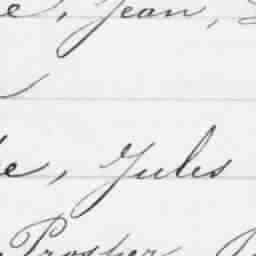 e, Jean,
e, Jules
Prosper